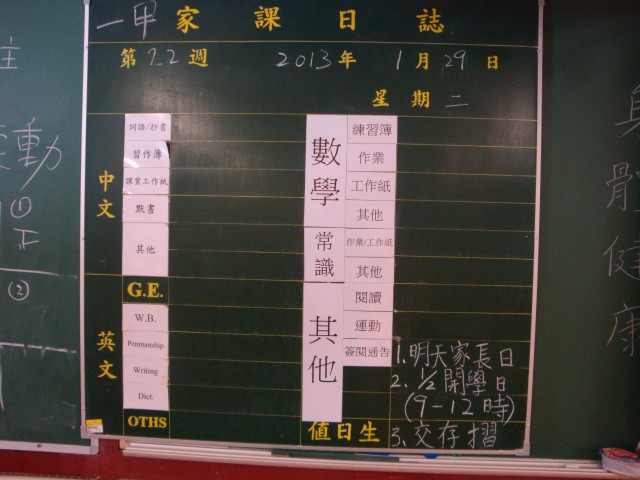 一甲 家課日誌
第22週 2013年 1月29日
星期二
中文
詞語/抄書
習作簿
課業工作紙
默書
其他
G.E.
英文
W.B.
Penmanship
Writing
Dict.
OTHS
數學
練習簿
作業
工作紙
其他
常識
作業/工作紙
其他
其他
閱讀
運動
簽閱通告
1. 明天家長日
2. 1/2 開學日
(9-12時)
3. 交存摺
值日生
動
①
②
體
健
康